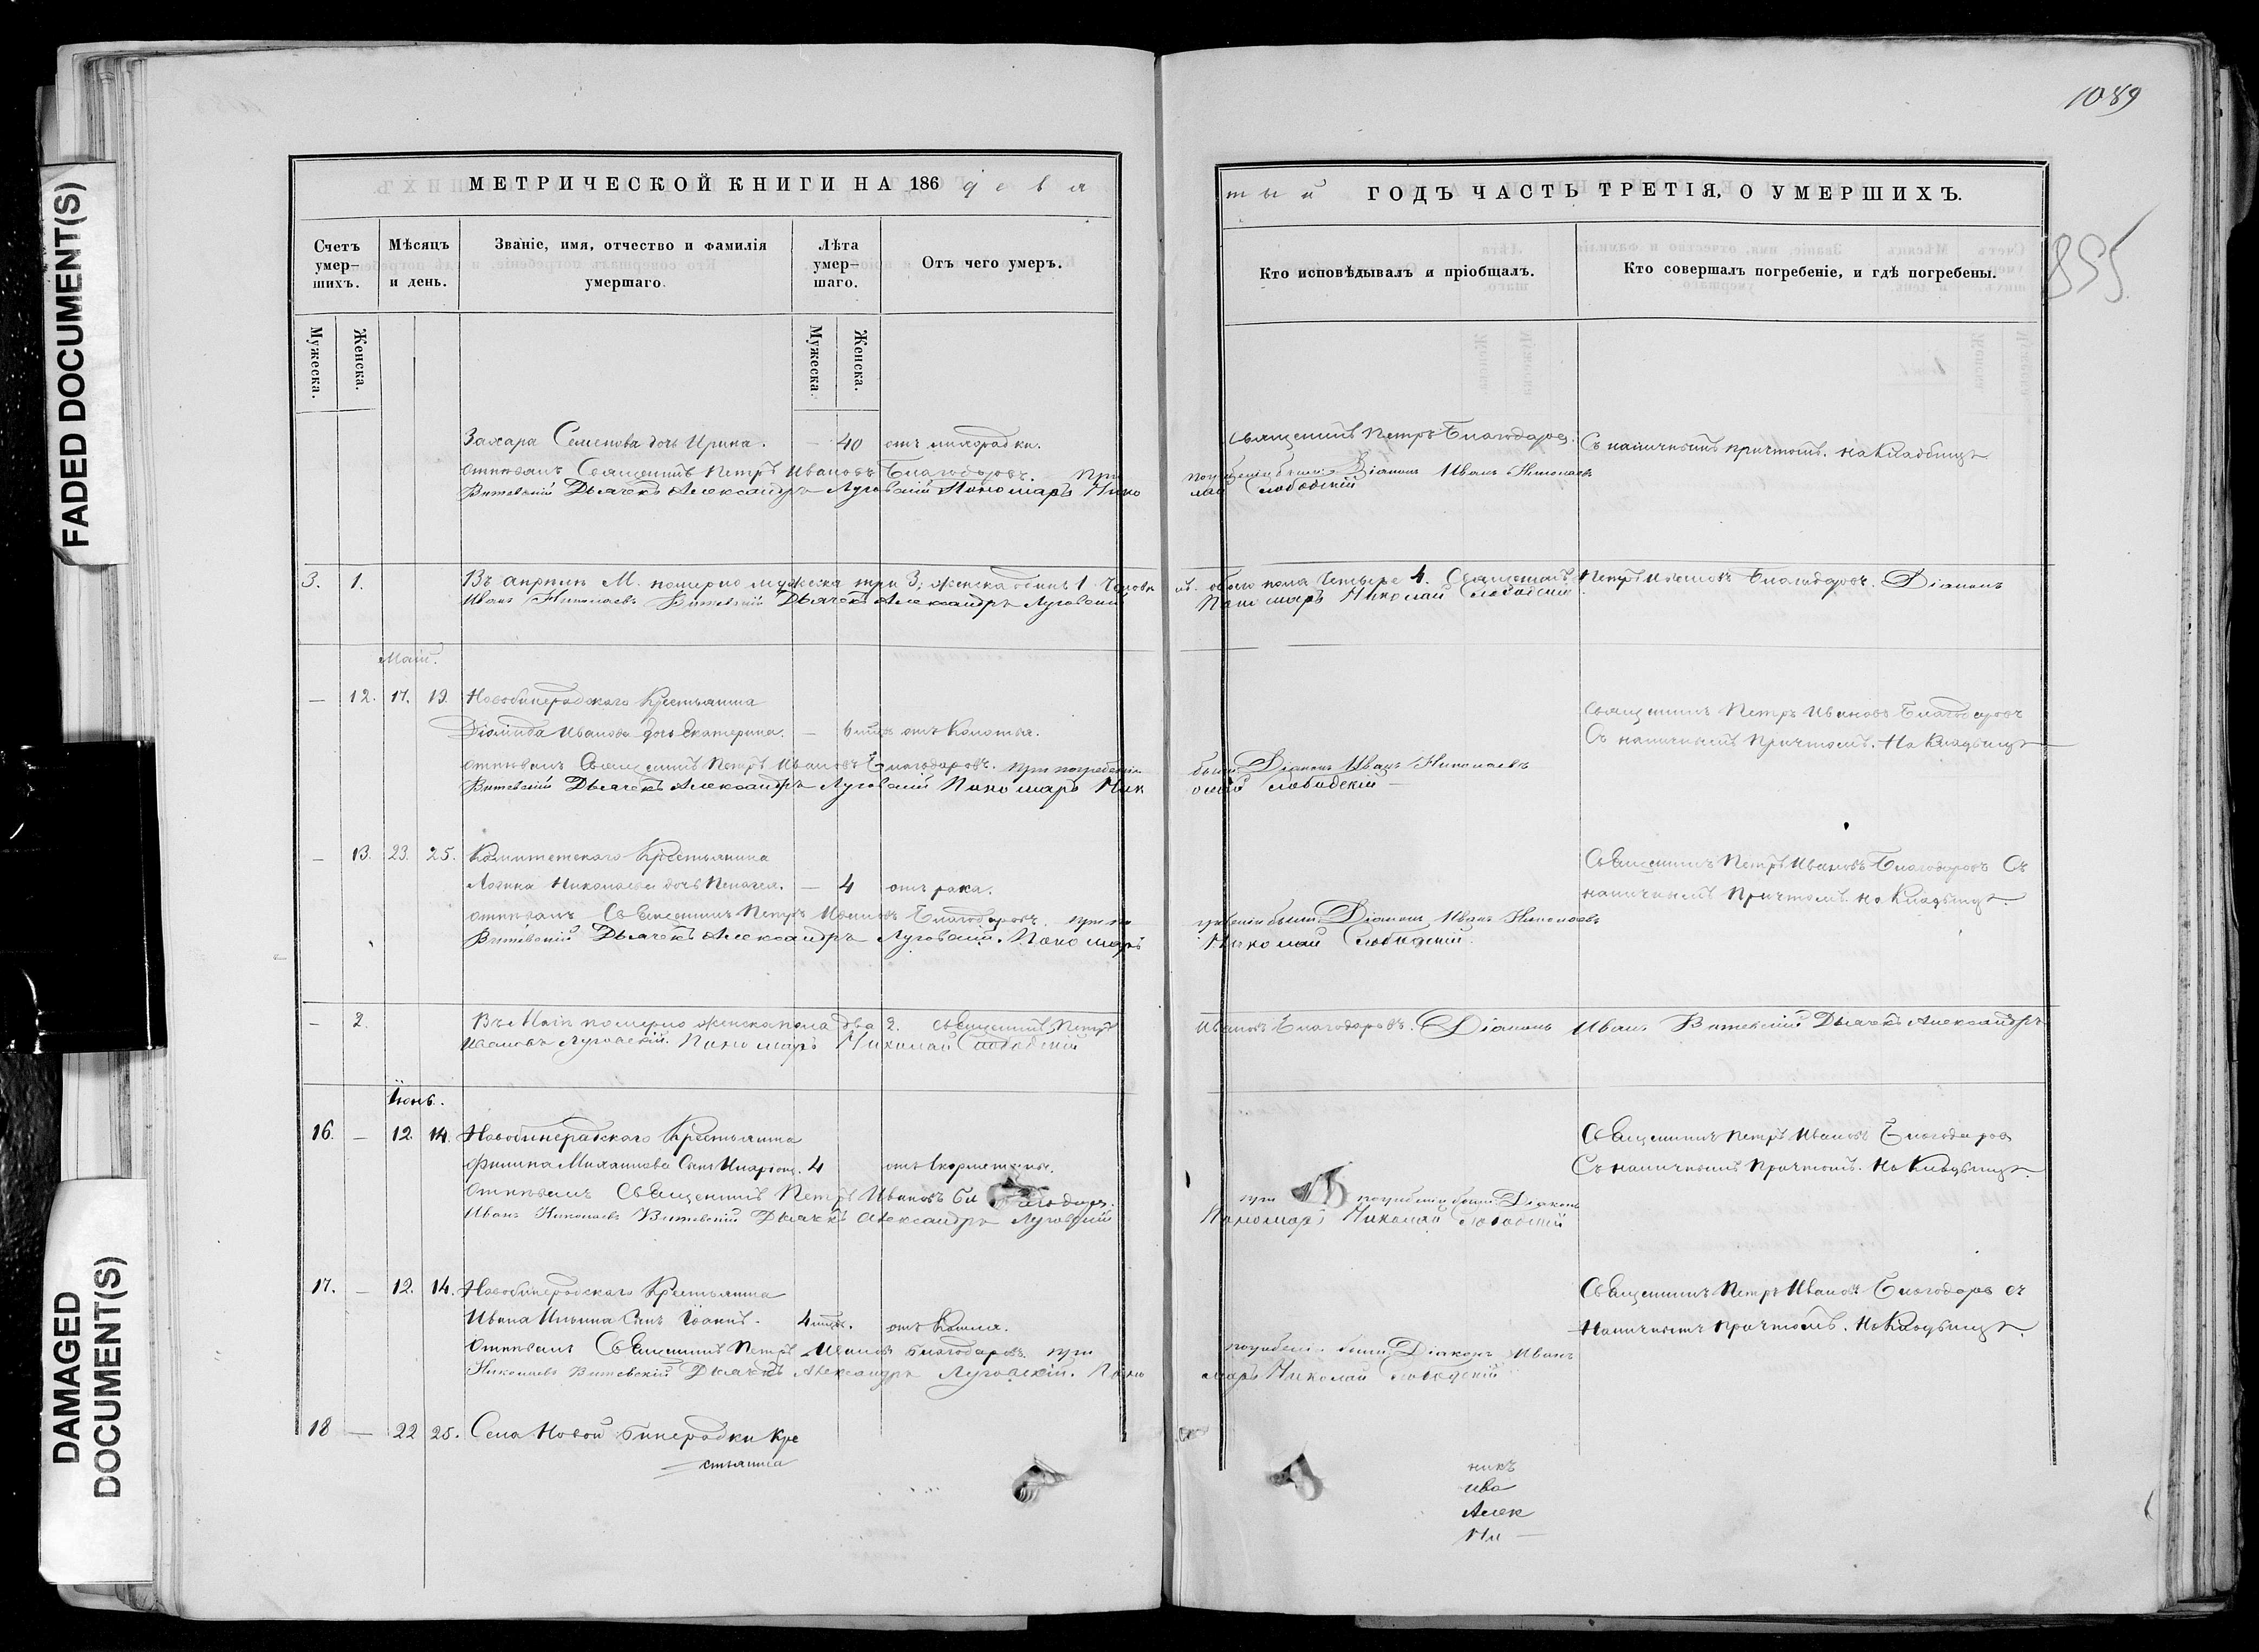 1089
855
FADED DOCUMENT(S)
DAMAGED DOCUMENT(S)
МЕТРИЧЕСКОЙ КНИГИ НА 186 девя
тый ГОДЪ ЧАСТЬ ТРЕТІЯ, О УМЕРШИХЪ.
Счетъ умер-шихъ.
Мѣсяцъ и день.
Званіе, имя, отчество и фамилія умершаго.
Лѣта умер-шаго.
Отъ чего умеръ.
Кто исповѣдывалъ и пріобщалъ.
Кто совершалъ погребеніе, и гдѣ погребены.
Мужеска. Женска. Мужеска. Женска.
Захара Семенова дочь Ирина. — 40 отъ лихорадки. Священникъ Петръ Благодаров. Съ наличнымъ причтомъ. на Кладбищѣ
отпѣвалъ Священникъ Петръ Ивановъ Благодаровъ. При погребеніи были: Діаконъ Иванъ Николаевъ
Витевскій Дьячекъ Александръ Луговскій Пономарь Нико лай Слободскій
3. 1. Въ апрѣлѣ М. померло мужеска три 3; женска одинъ 1. Человѣк обоего пола Четыре 4. Священникъ Петръ Ивановъ Благодаров. Діаконъ
Иванъ Николаевъ Витевскій Дьячекъ Александръ Луговскій Пономарь Николай Слободскій
Маій.
— 12. 17. 19. Новобинерадскаго Крестьянина Священникъ Петръ Ивановъ Благодаровъ
Діомида Иванова дочь Екатерина. — отъ Колотья. Съ наличнымъ Причтомъ. На Кладбищѣ
отпѣвалъ Священникъ Петръ Ивановъ Благодаровъ. При погребеніи были Діаконъ Иванъ Николаевъ
Витевскій Дьячекъ Александръ Луговскій Пономарь Ник олай Слободскій —
— 13. 23. 25. Крестьянина Священникъ Петръ Ивановъ Благодаровъ Съ
Логина Николаева дочь Пелагея. — 4 отъ рака. наличнымъ Причтомъ. на Кладбищѣ.
отпѣвалъ Священникъ Петръ Ивановъ Благодаровъ. при по гребеніи были Діаконъ Иванъ Николаевъ
Витевскій Дьячекъ Александръ Луговскій. Пономарь Николай Слободскій.
— 2. Въ Маіи померло женска пола два 2. Священникъ Петръ Ивановъ Благодаровъ. Діаконъ Иванъ Витевскій Дьячекъ Александръ
Ивановъ Луговскій. Пономарь Николай Слободскій
Іюнь.
16. — 12. 14. Новобинерадскаго Крестьянина Священникъ Петръ Ивановъ Благодаров
Филипа Михаилова Сынъ Иларіонъ. 4 Съ наличнымъ Причтомъ. На Кладбищѣ.
Отпѣвалъ Священникъ Петръ Ивановъ Бл агодаров. при погребеніи были Діаконъ
Иванъ Николаевъ Витевскій Дьячекъ Александръ Луговскій Пономарь Николай Слободскій
17. — 12. 14. Новобинерадскаго Крестьянина Священникъ Петръ Ивановъ Благодаров съ
Ивана Ильина Сынъ Іоаннъ. отъ Кашля. Наличнымъ Причтомъ. На Кладбищѣ.
Отпѣвалъ Священникъ Петръ Ивановъ Благодаровъ. при погребеніи были Діаконъ Иванъ
Николаевъ Витевскій Дьячекъ Александръ Луговскій. Поно марь Николай Слободскій
18 — 22 25. Села Новой Бинерадки Кре
стьянина
никъ
Ива
Алек
Ни —